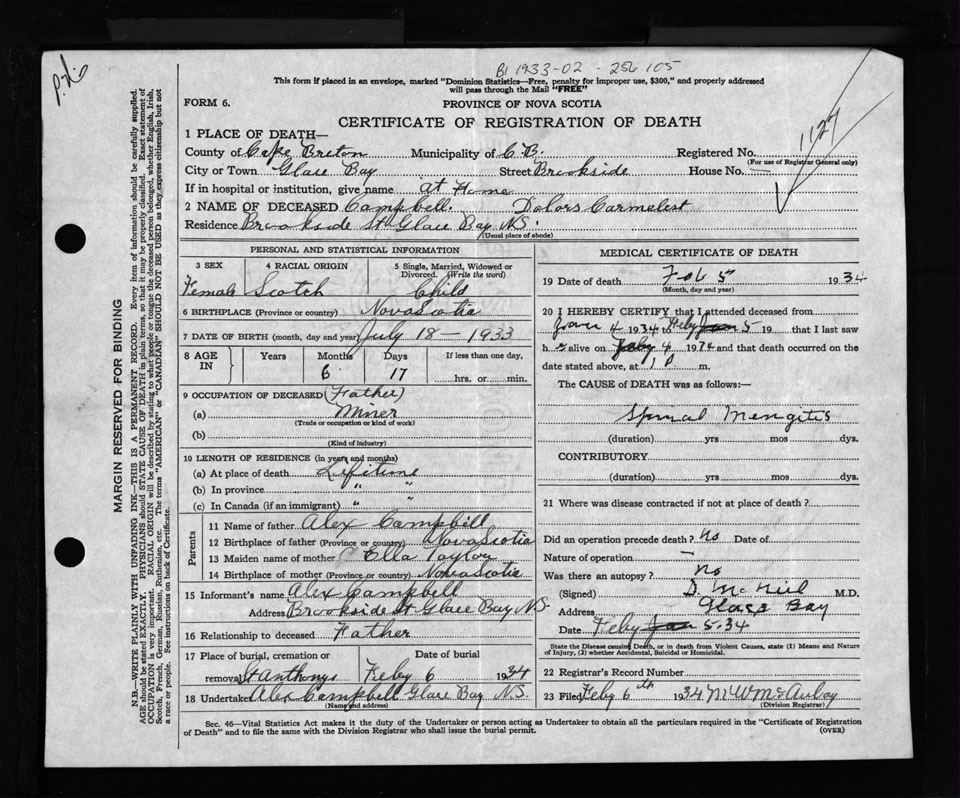 B1 1933-02-256105
This form if placed in an envelope, marked "Dominion Statistics—Free, penalty for improper use, $300," and properly addressed
will pass through the Mail "FREE"
FORM 6.
PROVINCE OF NOVA SCOTIA
CERTIFICATE OF REGISTRATION OF DEATH
1127
1 PLACE OF DEATH—
County of Cape Breton Municipality of C.B. Registered No.
(For use of Registrar General only)
City or Town Glace Bay Street Brookside House No. —
If in hospital or institution, give name at Home
2 NAME OF DECEASED Campbell. Dolors Carmelest
Residence Brookside St Glace Bay N.S.
(Usual place of abode)
PERSONAL AND STATISTICAL INFORMATION
3 SEX 4 RACIAL ORIGIN 5 Single, Married, Widowed or Divorced. (Write the word)
Female Scotch Child
6 BIRTHPLACE (Province or country) Nova Scotia
7 DATE OF BIRTH (month, day and year) July 18 — 1933
8 AGE IN Years Months Days If less than one day,
6 17 hrs. or min.
9 OCCUPATION OF DECEASED (Father)
(a) Miner
(Trade or occupation or kind of work)
(b)
(Kind of industry)
10 LENGTH OF RESIDENCE (in years and months)
(a) At place of death Lifetime
(b) In province " "
(c) In Canada (if an immigrant) " "
Parents
11 Name of father Alex Campbell
12 Birthplace of father (Province or country) Nova Scotia
13 Maiden name of mother Ella Taylor
14 Birthplace of mother (Province or country) Nova Scotia
15 Informant's name Alex Campbell
Address Brookside St Glace Bay N.S.
16 Relationship to deceased Father
17 Place of burial, cremation or Date of burial
removal St Anthonys Feby 6 1934
18 Undertaker Alex Campbell Glace Bay N.S.
(Name and address)
MEDICAL CERTIFICATE OF DEATH
19 Date of death Feb 5 1934
(Month, day and year)
20 I HEREBY CERTIFY that I attended deceased from
Jan 4 1934 to Feby 5 19 that I last saw
h alive on Feby 4 1934 and that death occurred on the
date stated above, at 10 m.
The CAUSE of DEATH was as follows:—
Spinal Mengitis
(duration) yrs mos dys.
CONTRIBUTORY
(duration) yrs mos dys.
21 Where was disease contracted if not at place of death?
Did an operation precede death? No Date of
Nature of operation —
Was there an autopsy? No
(Signed) D. McNeil M.D.
Address Glace Bay
Date Feby 5.34
State the Disease causing Death, or in death from Violent Causes, state (1) Means and Nature
of Injury, (2) whether Accidental, Suicidal or Homicidal.
22 Registrar's Record Number
23 Filed Feby 6th 1934 M W McAulay
(Division Registrar)
Sec. 46—Vital Statistics Act makes it the duty of the Undertaker or person acting as Undertaker to obtain all the particulars required in the "Certificate of Registration
of Death" and to file the same with the Division Registrar who shall issue the burial permit.
(OVER)
MARGIN RESERVED FOR BINDING
N.B.—WRITE PLAINLY WITH UNFADING INK—THIS IS A PERMANENT RECORD. Every item of information should be carefully supplied.
AGE should be stated EXACTLY. PHYSICIANS should STATE CAUSE OF DEATH in plain terms, so that it may be properly classified. Exact statement of
OCCUPATION is very important. RACIAL ORIGIN will be described by stating to what people or tongue the deceased person belonged, whether English, Irish,
Scotch, French, German, Russian, Ruthenian, etc. The terms "AMERICAN" or "CANADIAN" SHOULD NOT BE USED as they express citizenship but not
a race or people. See instructions on back of Certificate.